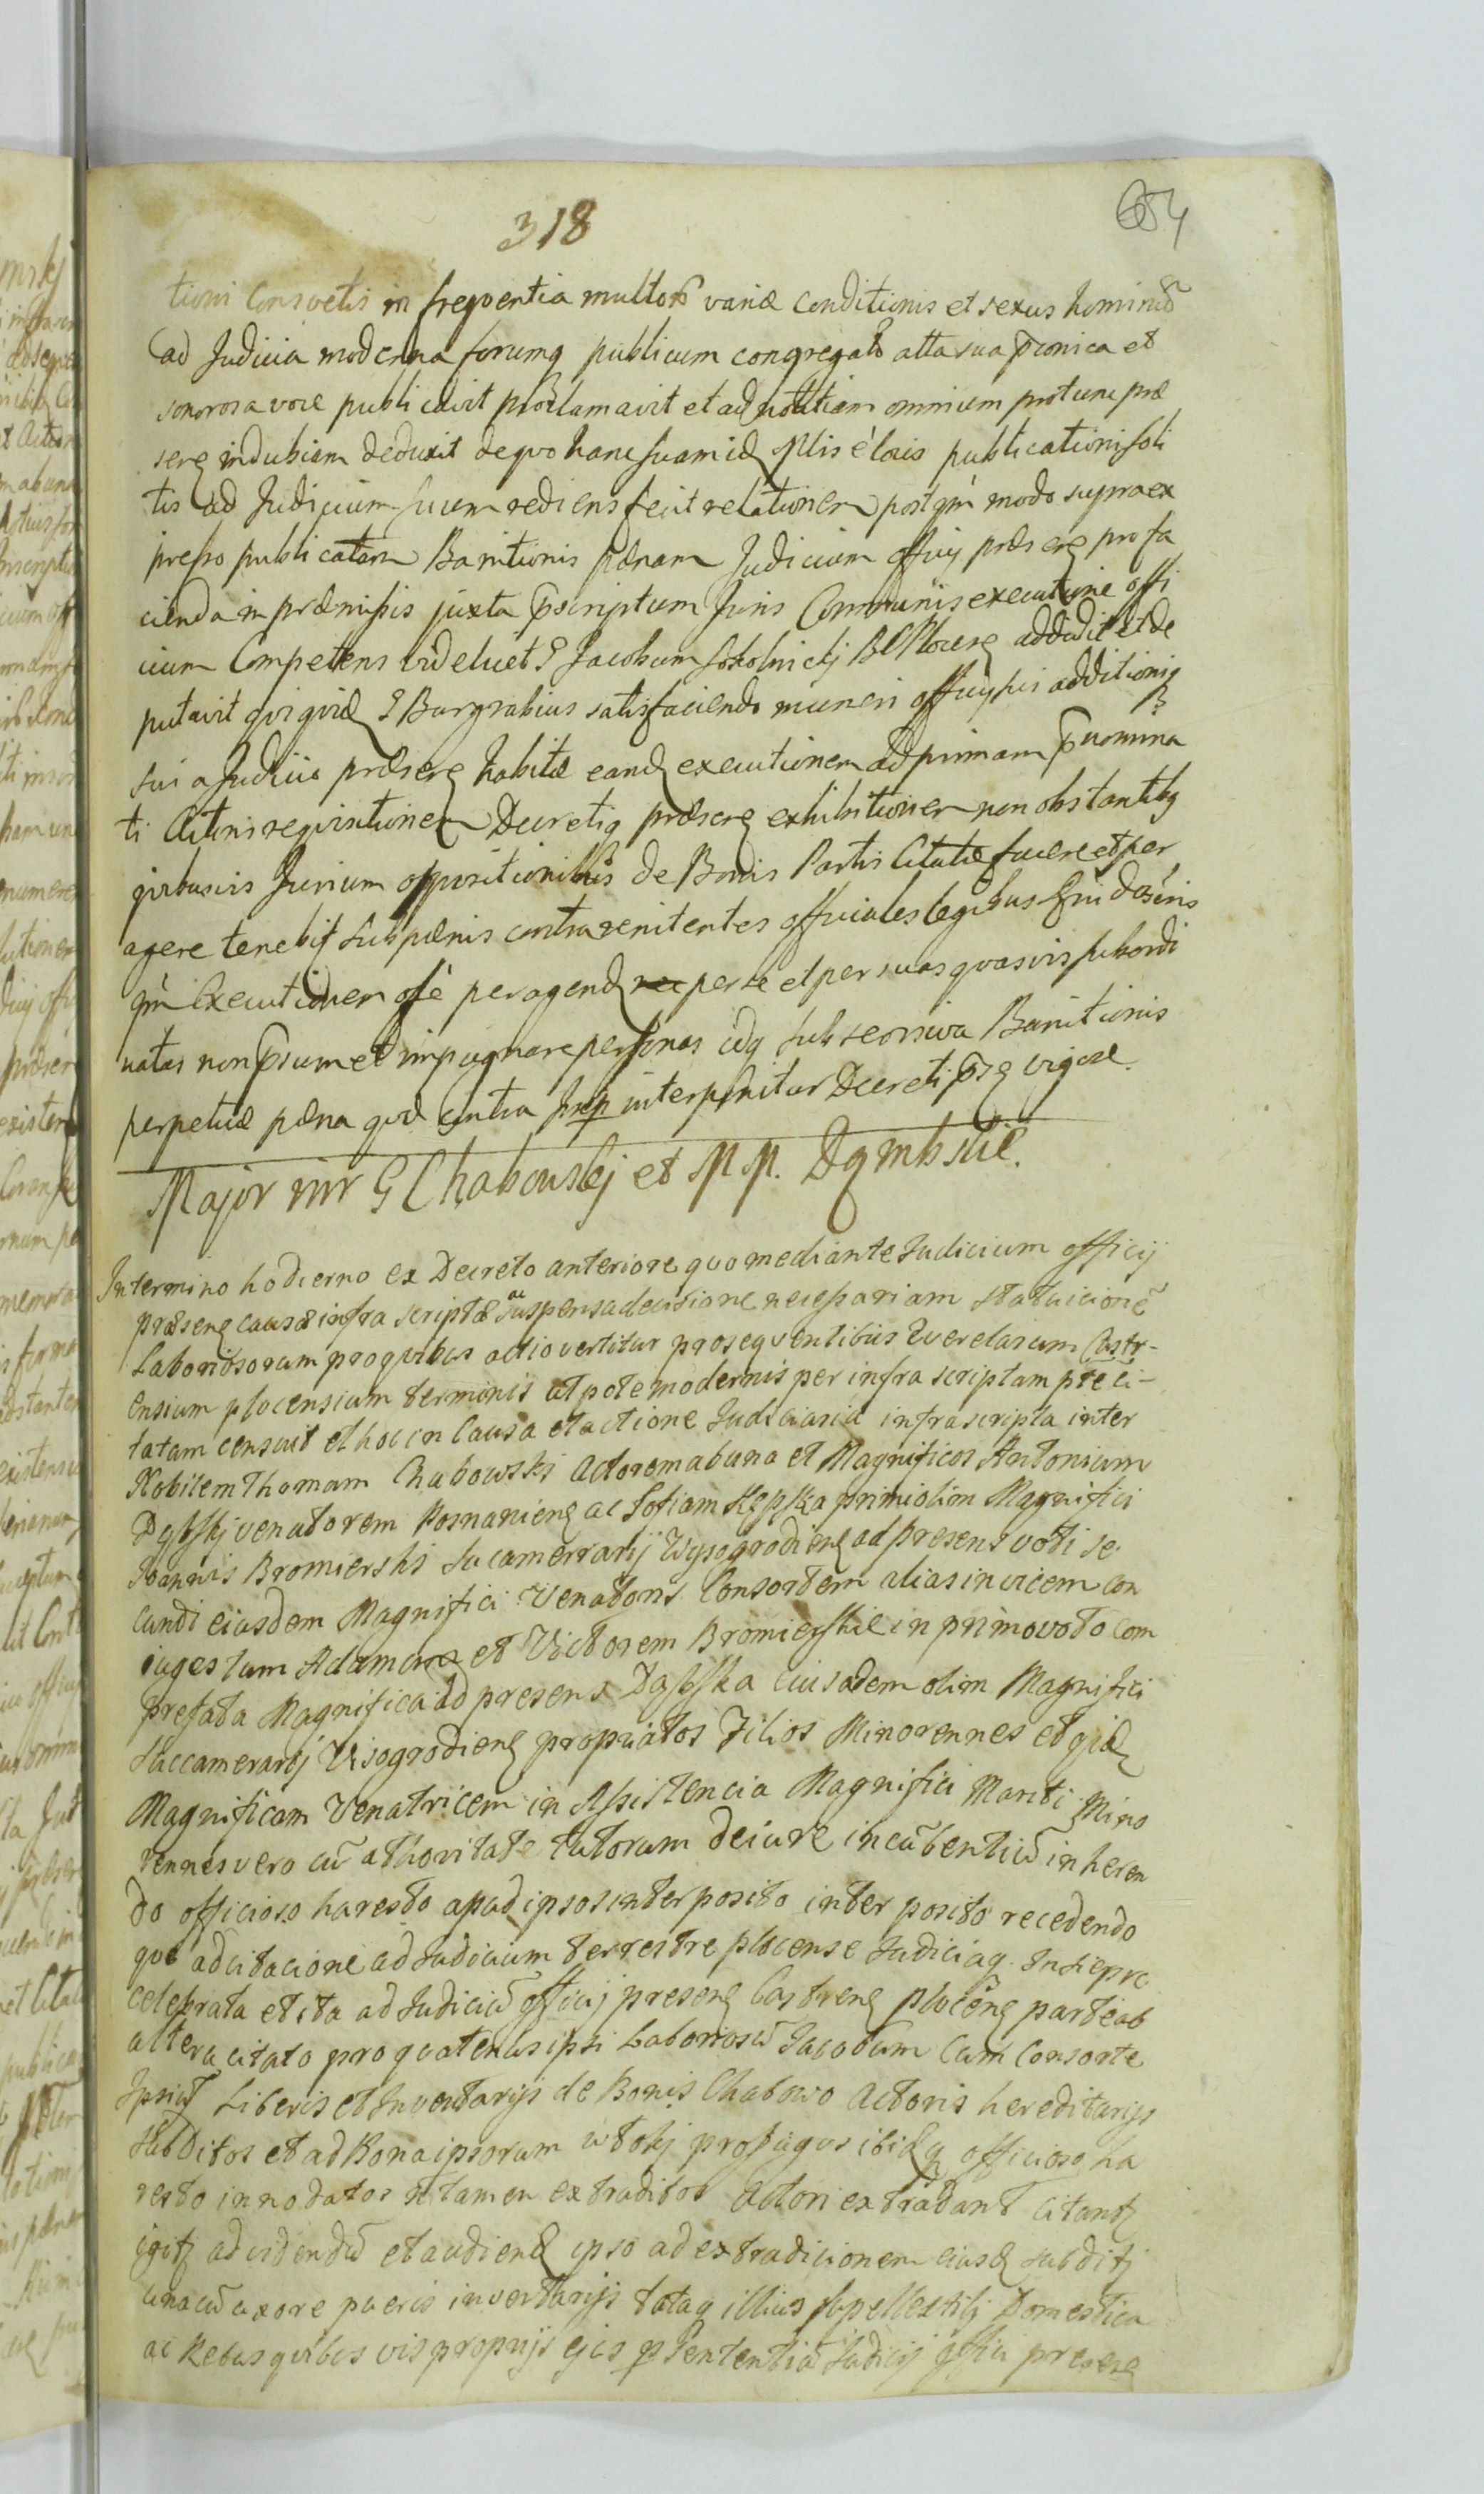 318
654
tioni Consvetis in freqventia multorũ variæ conditionis et sexus hominũ
ad Judicia moderna forumq publicum congregatõ alta sua p̃conica et
sonorosa voce publicavit proclamavit et ad notitiam omnium protunc præ
seng indubiam deduxit de qvo hanc suam id ptis è locis publicationi soli
tis ad Judicium suum rediens fecit relationem post qm̃ modo supra ex
presso publicatam Banitionis pænam Judicium officij præseng pro fa
cienda in præmissis juxta p̃scriptum Juris Communis executione offi
cium Competens videlicet G Jacobum Sokolnickj B C Plocens addidit et de
putavit qvi qvid G Burgrabius satisfaciendo muneri officij sui additioniq
sui a Judicio præseng habitæ eand executionem ad primam p̃nomina
ti Actoris reqvisitionem Decretiq præseng exhibitionem non obstantibg
qvibusvis Jurium oppositionibus de Bonis Partis Citatæ facere et per
agere tenebit sub pænis contra renitentes officiales legibus
qm̃ Executionem peragend per se et per suas qvasvis subordi
natas non p̃sumet impugnare personas idq sub seorsiva Banitionis
perpetuæ pæna qvæ contra interponitur Decreti p̃sg vigore.
Major mr G Chabowskj et M M. Dąmbskie.
In termino hodierno ex Decreto anteriore quo mediante Judicium officij
præseng causæ infra scriptæ ac suspensa decisione necessariam statuicionẽ
Laboriosorum pro quibus actio vertitur proseqventibus Querelarum Castr-
ensium plocensium terminis utpote modernis per infra scriptam ptẽ ci-
tatam censuit et hoc in Causa et actione Judiciaria infrascripta inter
Nobilem Thomam Chabowski Actorem ab una et Magnificos Antonium
Dąbskj venatorem Posnanieng ac Sofiam Hepska primi olim Magnifici
Joannis Bromierski Sucamerrarij Wysogrodieng ad presens voti se
cundi eiusdem Magnifici Venatoris Consortem alias invicem con
iuges tum Adamum et Victorem Bromierskie in primo voto com
prefata Magnifica ad presens Dąbska eiusdem olim Magnifici
Succamerarij Visogrodieng propriatos Filios Minorennes et qid
Magnificam Venatricem in Assistencia Magnifici Mariti Mino
rennes vero cũ athoritate tutorum de iure incũbentiũ inheren
do officioso haresto apud ipsos interposito inter posito recedendo
que ad citacione ad Judicium terrestre plocense Judiciaq
celebrata et ita ad Judiciũ officij preseng Castreng plocẽng parte ab
altera citato pro quatenus ipsi Laboriosũ Jacobum Cum Consorte
Ipsiq Liberis et Inventarijs de Bonis Chabowo Actoris hereditarijs
subditos et ad Bona ipsorum wtokj profugos ibidq officioso ha
resto innodatos n tamen extraditos Actori extradant Citantq
igitq ad videndũ et audiend ipso ad extradicionem eiusd subditj
una cũ uxore pueris inventarijs totaq illius suppellextilj Domestica
ac Rebus quibus vis proprijs ejus p sententiã Judicij officij preseng